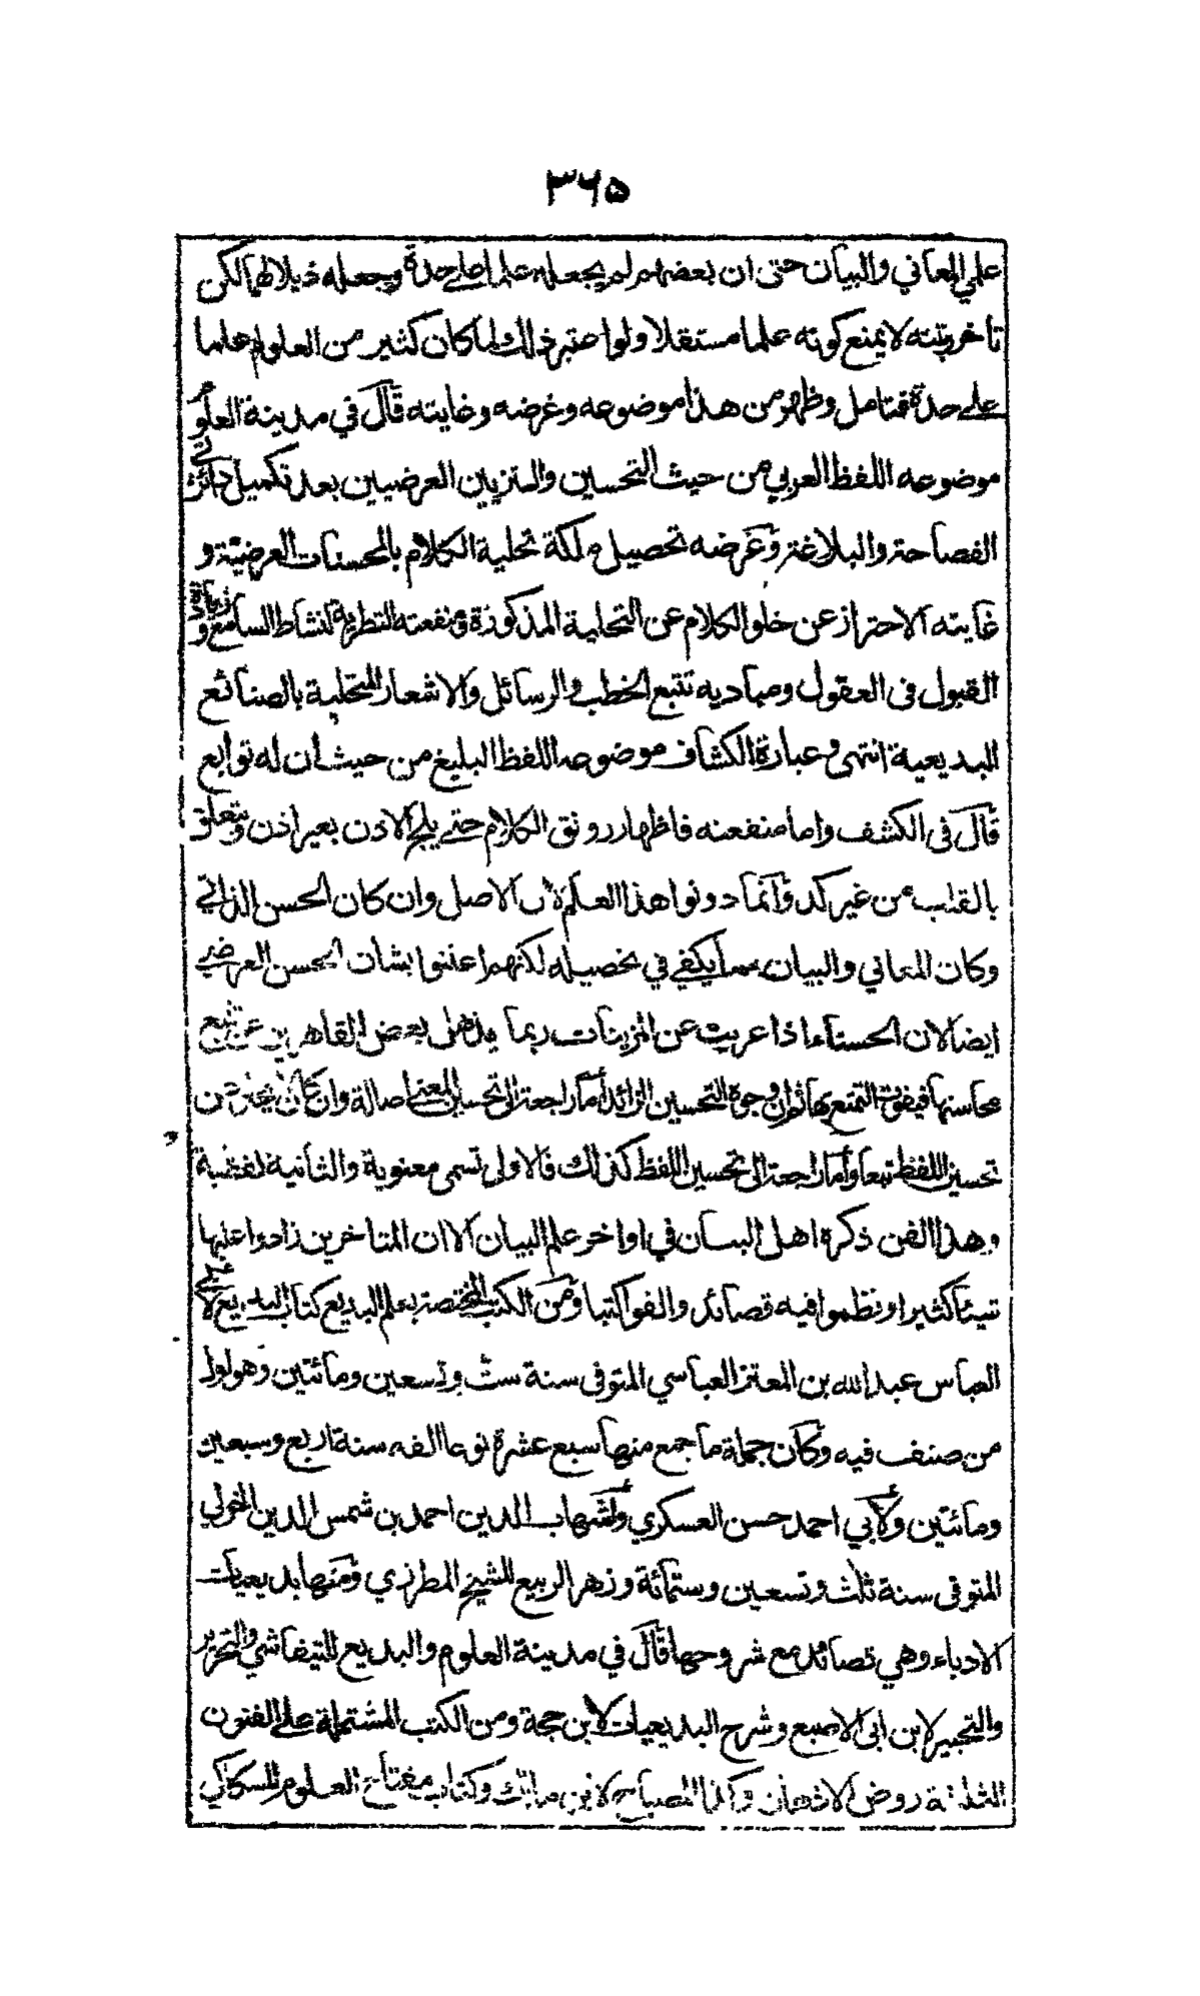 ۳۶۵
علمي المعاني والبيان حتى ان بعضهم لم يجعله علما على حدة وجعله ذيلا لهما لكن
تاخر رتبته لا يمنع كونه علما مستقلا ولو اعتبر ذلك لما كان كثير من العلوم علما
على حدة فتامل وظهر من هذا موضوعه وغرضه وغايته قال في مدينة العلوم
موضوعه اللفظ العربي من حيث التحسين والتزيين العرضيين بعد تكميل دائرتي
الفصاحة والبلاغة وغرضه تحصيل ملكة تحلية الكلام بالمحسنات العرضية و
غايته الاحتراز عن خلو الكلام عن التحلية المذكورة ومنفعته التطرية لنشاط السامع وزيادة
القبول فى العقول ومباديه تتبع الخطب والرسائل والاشعار المتحلية بالصنائع
البديعية انتهى وعبارة الكشاف موضوعه اللفظ البليغ من حيث ان له توابع
قال فى الكشف واما منفعته فاظهار رونق الكلام حتى يلج الاذن بغير اذن ويتعلق
بالقلب من غير كد وانما دونوا هذا العلم لان الاصل وان كان الحسن الذاتي
وكان المعاني والبيان مما يكفي في تحصيله لكنهم اعتنوا بشان الحسن العرضي
ايضا لان الحسناء اذا عريت عن المزينات ربما يذهل بعض القاهرين عن تتبع
محاسنها فيفوت التمتع بها ثم ان وجوه التحسين الزائد اما راجعة الى تحسين المعنى اصالة وان كان لا يخلو عن
تحسين اللفظ تبعا واما راجعة الى تحسين اللفظ كذلك فالاولى تسمى معنوية والثانية لفظية
وهذا الفن ذكره اهل البيان في اواخر علم البيان الا ان المتاخرين زادوا عليها
شيئا كثيرا ونظموا فيه قصائد والفوا كتبا ومن الكتب المختصة بعلم البديع كتاب البديع لابي
العباس عبد الله بن المعتز العباسي المتوفى سنة ست وتسعين ومائتين وهو اول
من صنف فيه وكان جملة ما جمع منها سبع عشرة نوعا الفه سنة اربع وسبعين
ومائتين ولابي احمد حسن العسكري ولشهاب الدين احمد بن شمس الدين الخولي
المتوفى سنة ثلث وتسعين وستمائة وزهر الربيع للشيخ المطرزي ومنها بديعيات
الادباء وهي قصائد مع شروحها قال في مدينة العلوم والبديع للتيفاشي والتحرير
والتحبير لابن ابى الاصبع وشرح البديعيات لابن حجة ومن الكتب المشتملة على الفنون
الثلثة روض الاذهان والمصباح لابن مالك وكتاب مفتاح العلوم للسكاكي